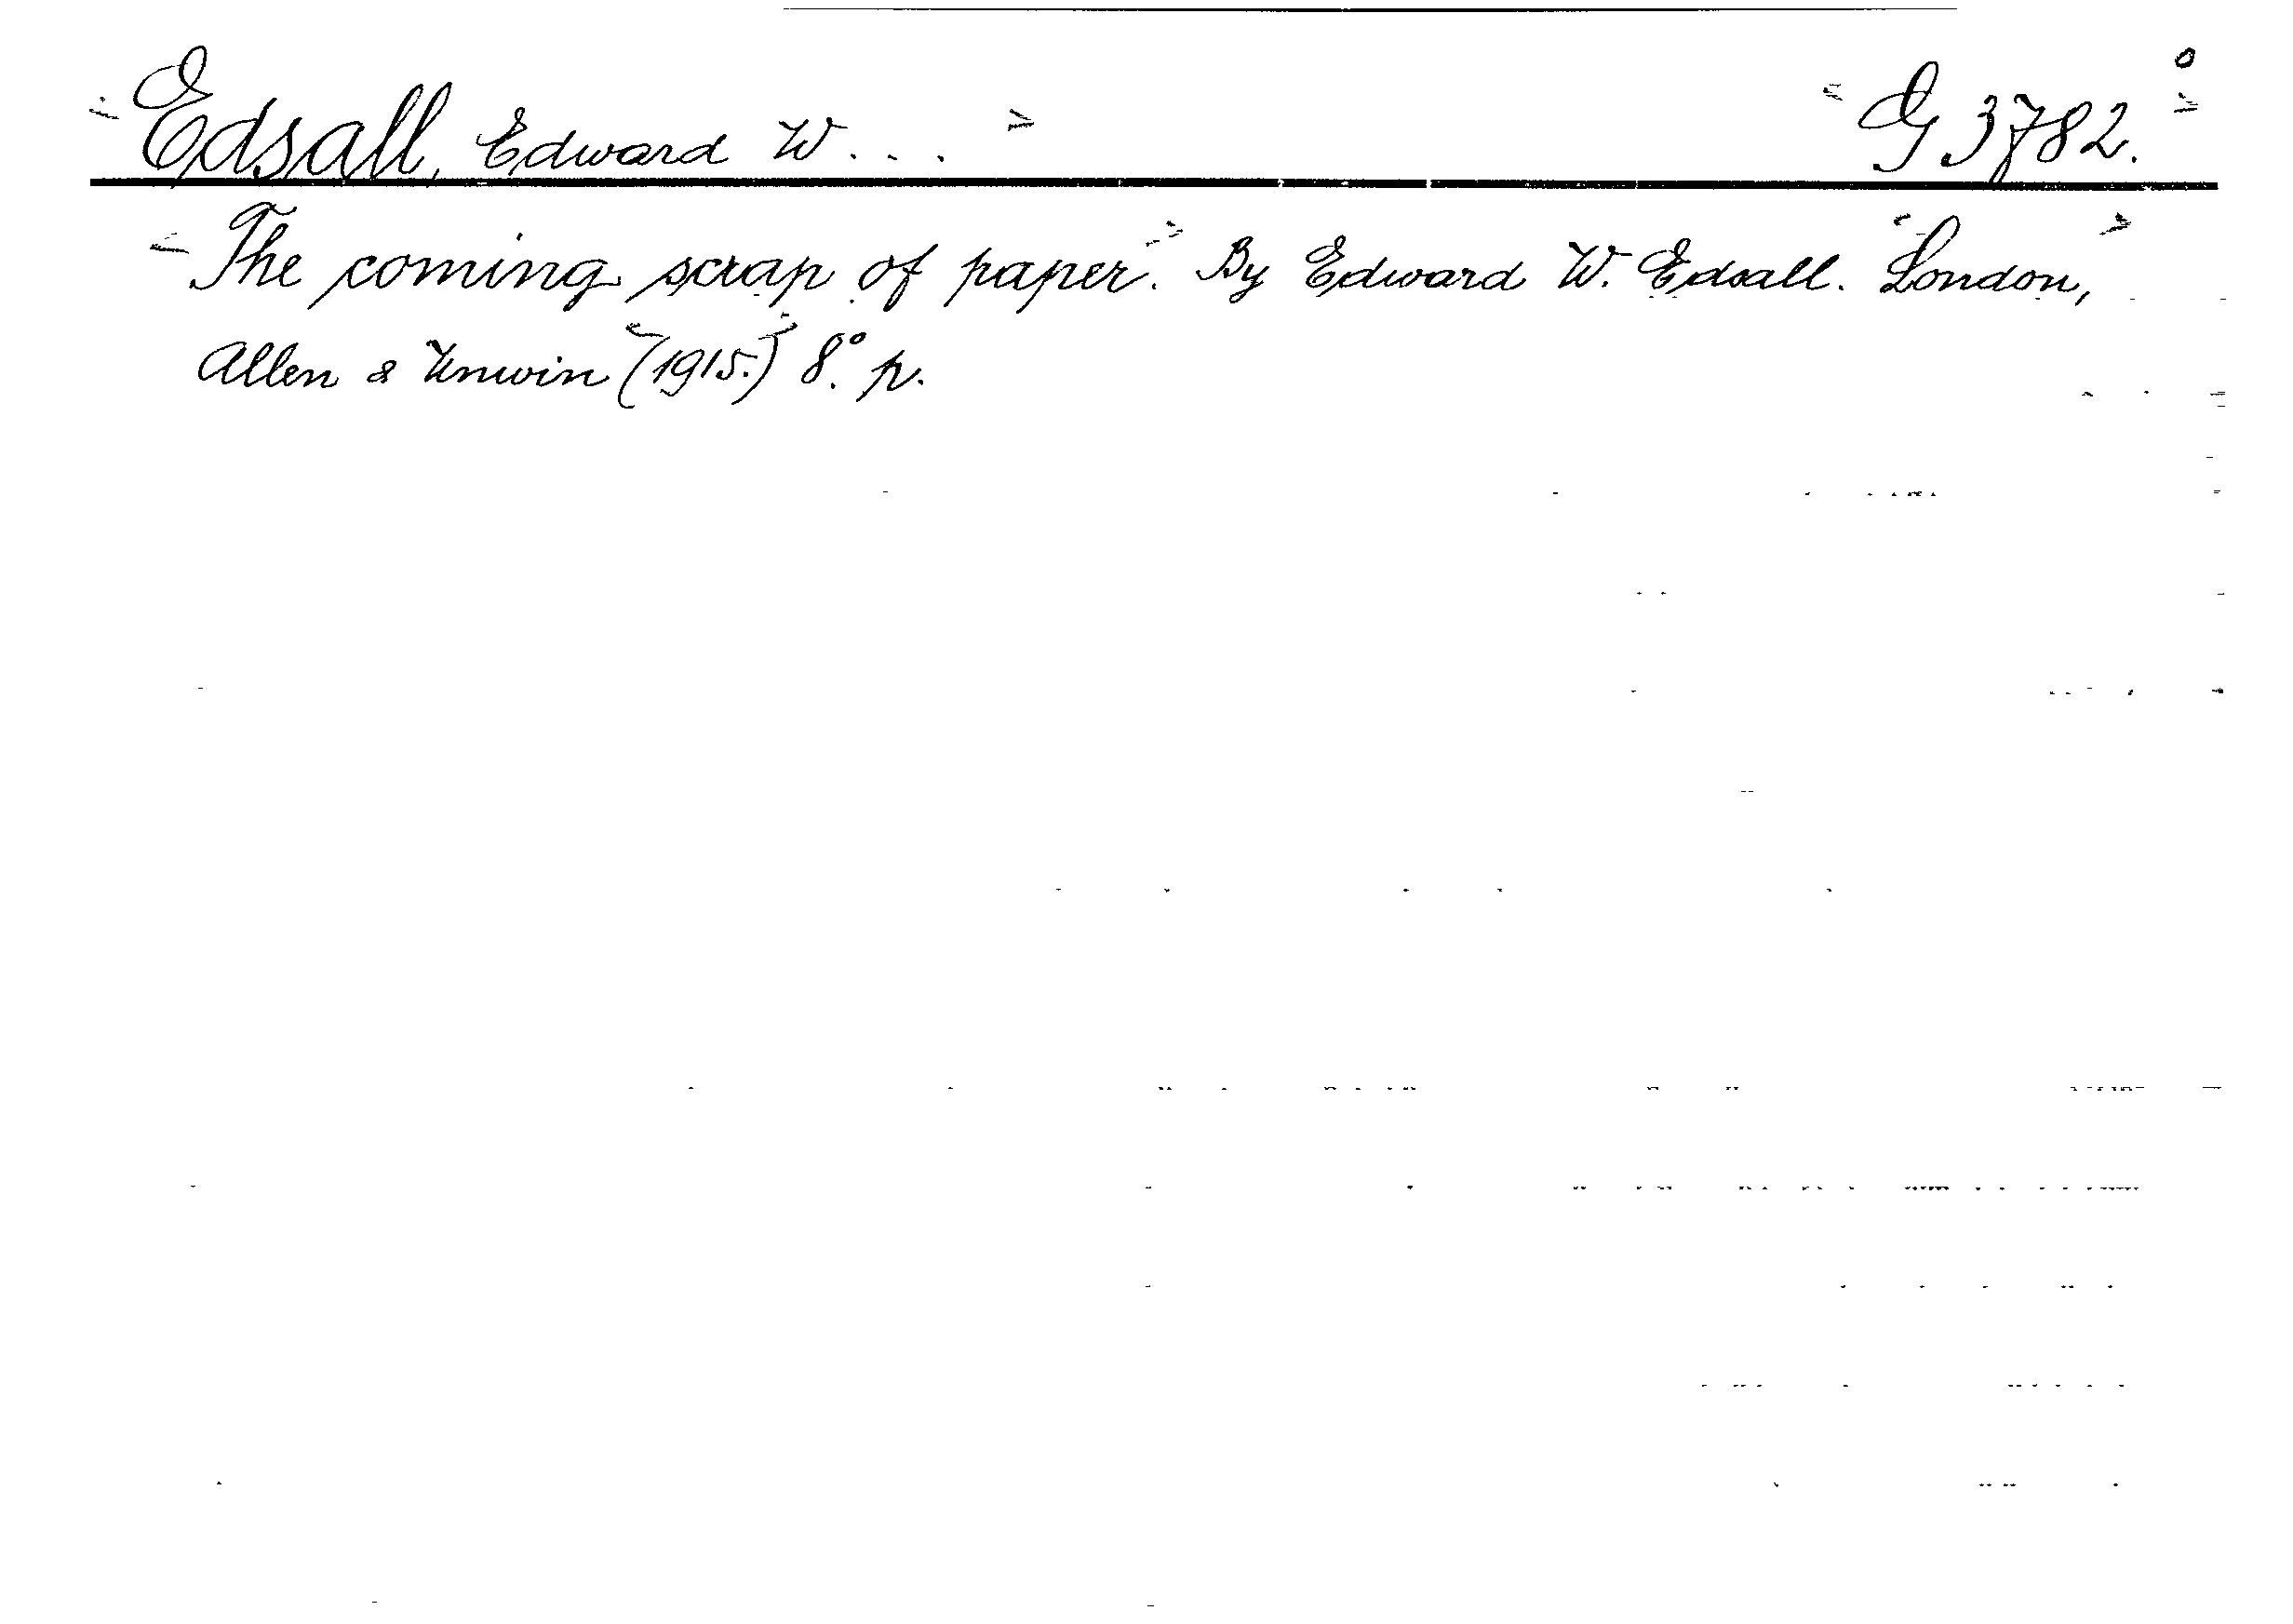 Edsall, Edward W... G 3782.°
The coming scrap of paper. By Edward W. Edsall. London,
Allen & Unwin (1915.) 8°. p.